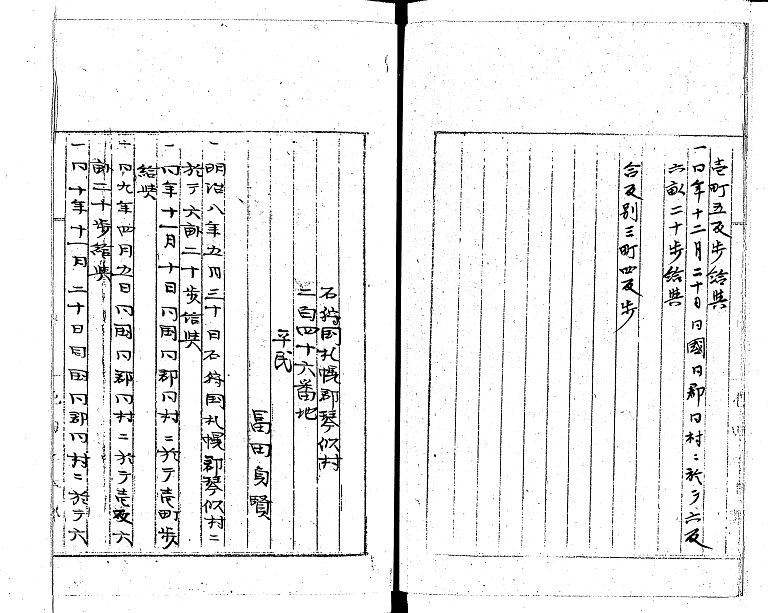 壱町五反歩給與
一同年十二月二十日同國同郡同村ニ於テ六反
六畝二十歩給與
合反別三町四反歩
石狩国札幌郡琴似村
二百四十六番地
平民
冨田貞賢
一明治八年五月三十日石狩国札幌郡琴似村ニ
於テ六畝二十歩給與
一同年十一月十日同国同郡同村ニ於テ壱町歩
給與
一同九年四月五日同国同郡同村ニ於テ壱反六
畝二十歩給與
一同十年十一月二十日同国同郡同村ニ於テ六